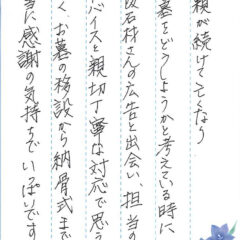 親が続けて亡くなり
墓をどうしようかと考えている時に
石材さんの広告と出会い、担当の
バイスと親切丁寧な対応で思う
く、お墓の移設から納骨式まで
に感謝の気持ちでいっぱいです